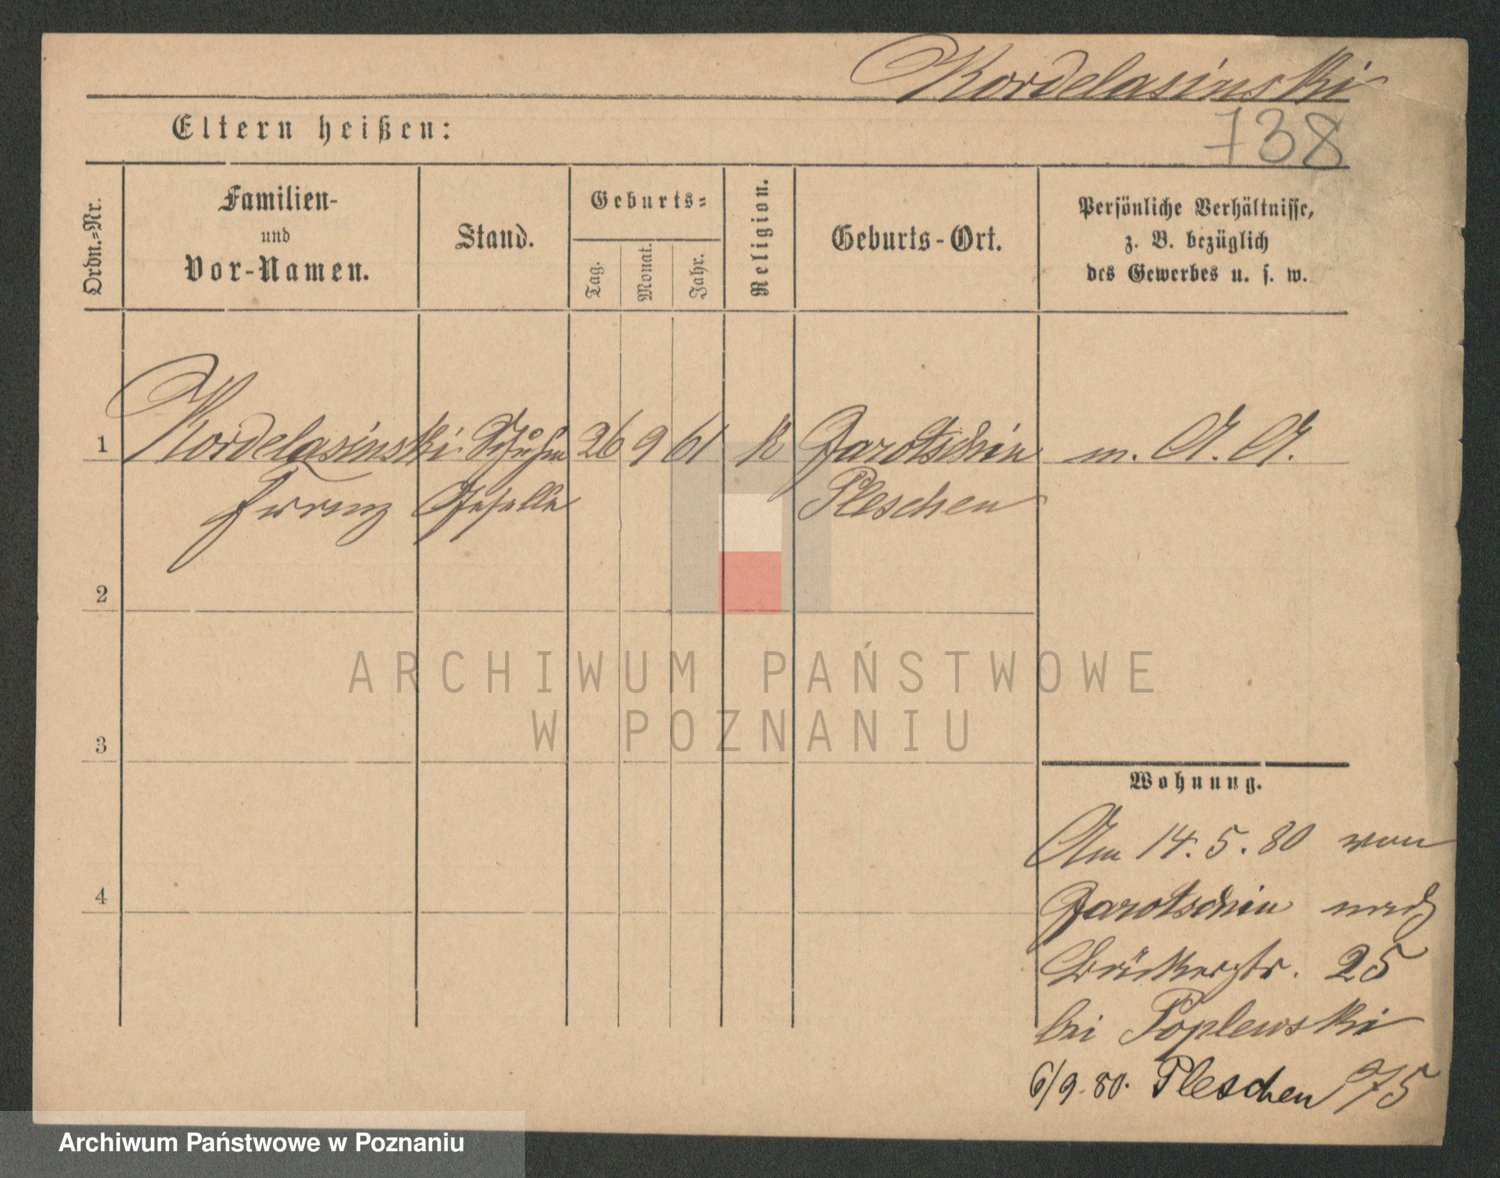 Kordelasinski
738
Eltern heißen:
Ordn.=Nr.
Familien-
und
Vor-Namen.
Stand.
Geburts=
Tag.
Monat.
Jahr.
Religion.
Geburts-Ort.
Persönliche Verhältnisse,
z. B. bezüglich
des Gewerbes u. s. w.
1 Kordelasinski Schuhm 26 9 61 k Jarotschin m. A. A.
Franz Geselle Pleschen
2
ARCHIWUM PAŃSTWOWE
W POZNANIU
3
Wohnung.
Am 14.5.80 von
4
Jarotschin nach
25
bei Poplewski
6/9.80. Pleschen 75
Archiwum Państwowe w Poznaniu